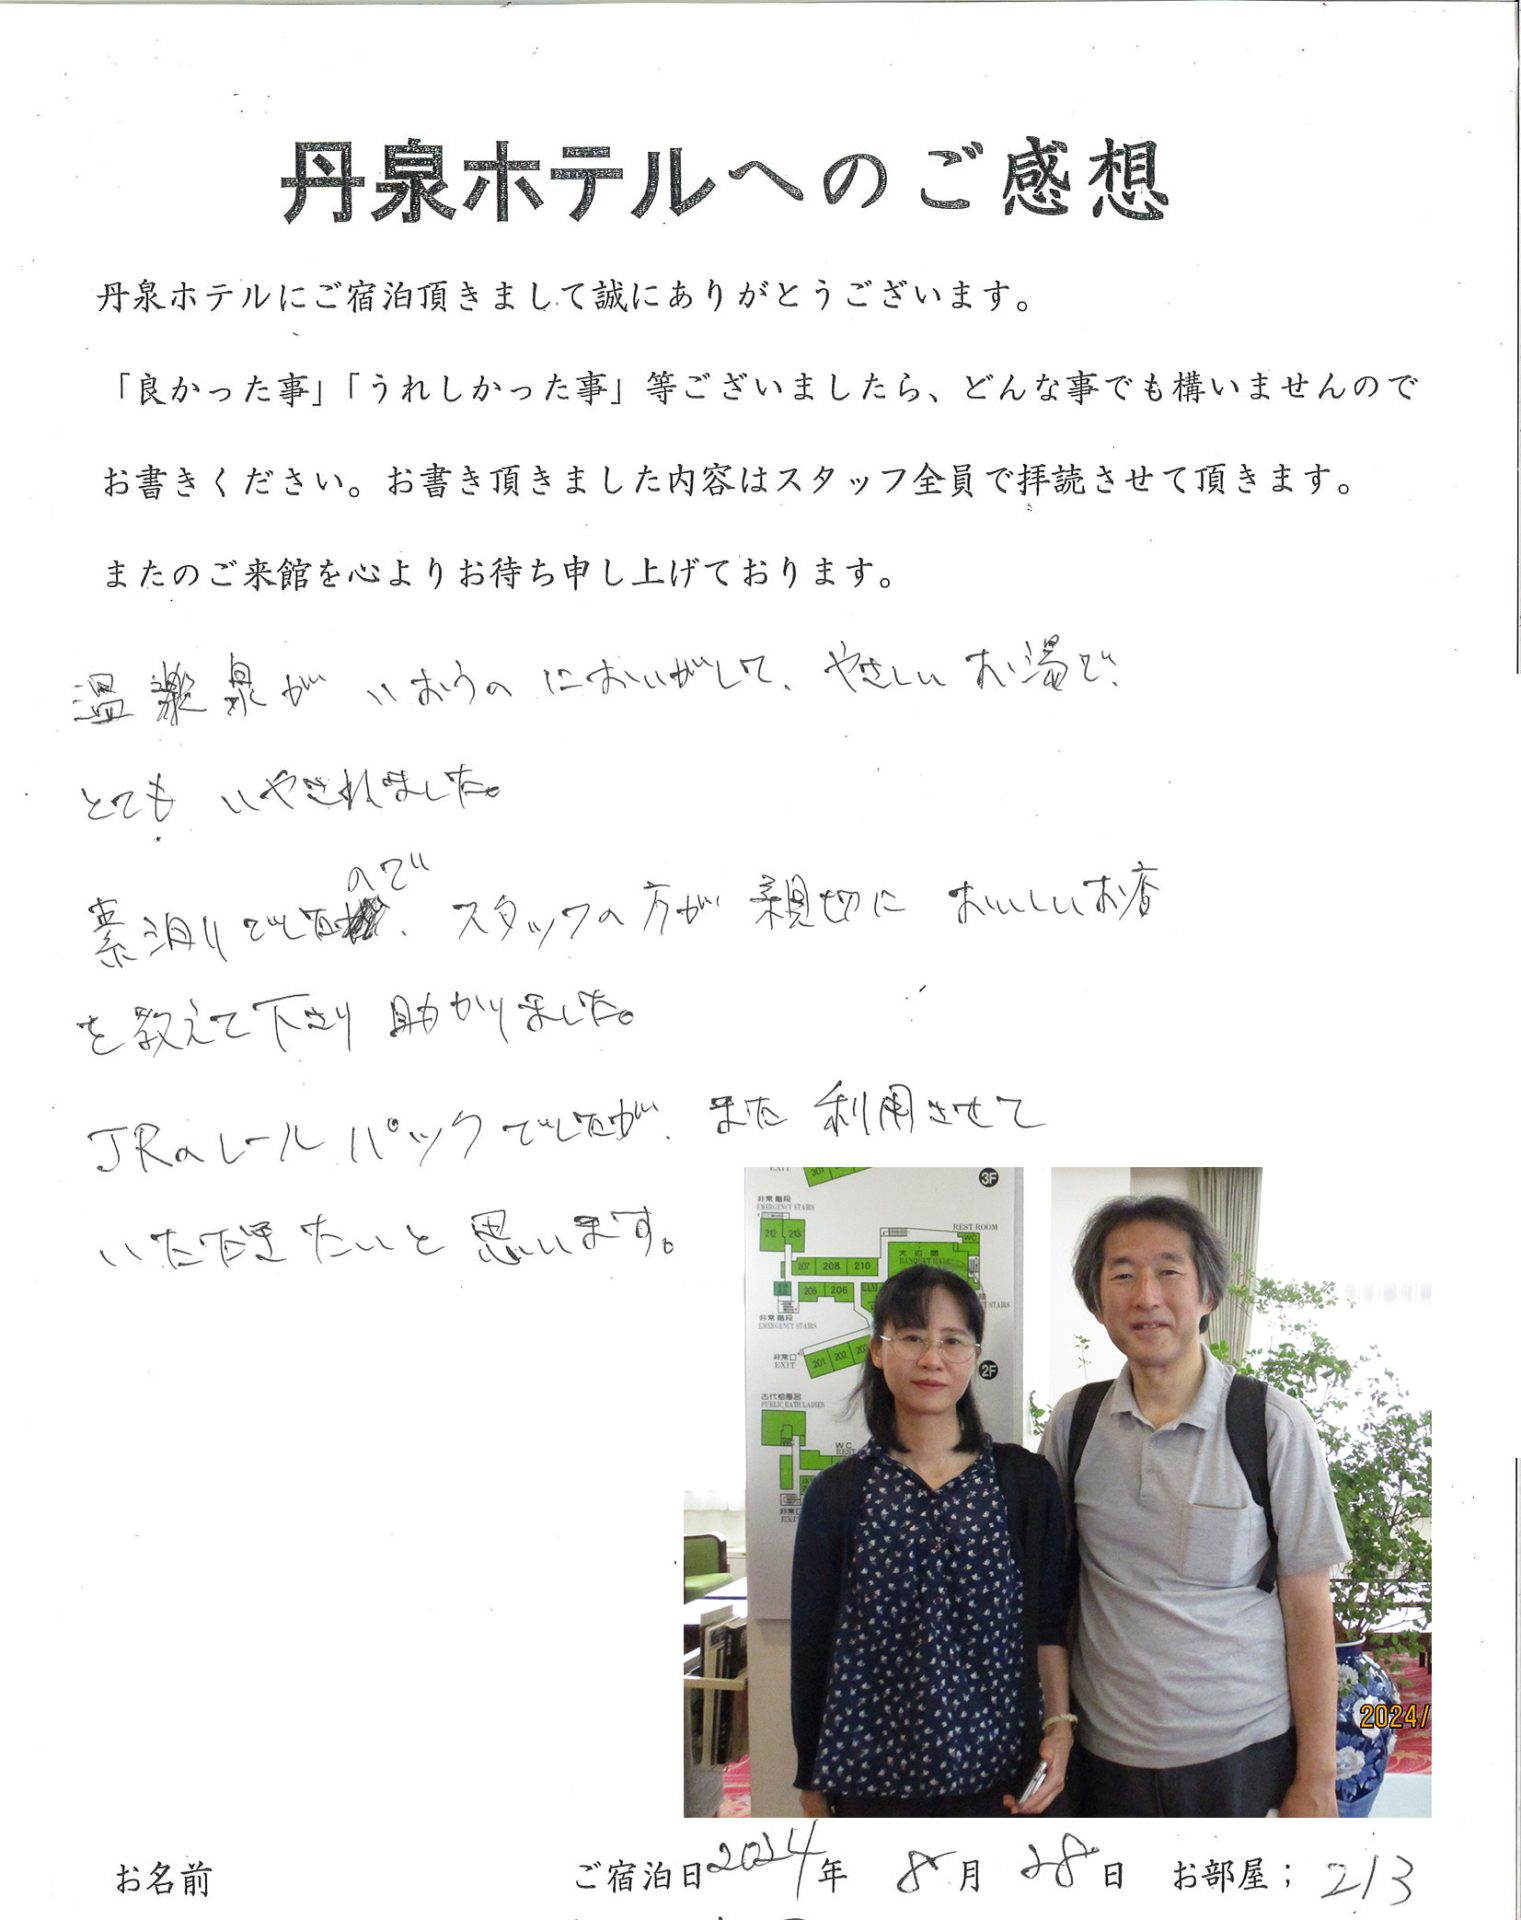 丹泉ホテルへのご感想
丹泉ホテルにご宿泊頂きまして誠にありがとうございます。
「良かった事」「うれしかった事」等ございましたら、どんな事でも構いませんので
お書きください。お書き頂きました内容はスタッフ全員で拝読させて頂きます。
またのご来館を心よりお待ち申し上げております。
温泉が いおうの においがして、やさしい お湯で、
とても いやされました。
素泊りでしたので、スタッフの方が 親切に おいしいお店
を教えて下さり 助かりました。
JRのレールパックでしたが、また 利用させて
いただきたいと 思います。
EXIT
301
3F
非常階段
EMERGENCY STAIRS
212 213
REST ROOM
WC
大広間
BANQUET HALL
207 208 210
205 206
非常階段
EMERGENCY STAIRS
STAIRS
非常口
EXIT
201 202
2F
古代桧風呂
PUBLIC BATH LADIES
WC
REST
非常口
EXIT
2024/
お名前 ご宿泊日 2024年 8月 28日 お部屋; 213